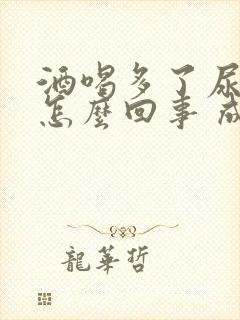 酒喝多了尿
怎麼回事 成
龍華哲